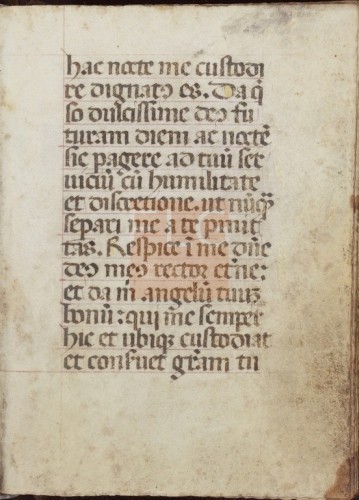 hac nocte me custodi
re dignatus es. Da q̄
so dulcissime deus fu
turam diem ac noctē
sic pagere ad tuū ser
uiciū cū humilitate
et discretione. ut nūqꝫ
separi me a te pmit
tas. Respice ī me dn̄e
deus meus rector etn̄e:
et da m̄ angelū tuuꝫ
bonū: qui me semper
hic et ubiqꝫ custodiat
et conseruet gr̄am tu